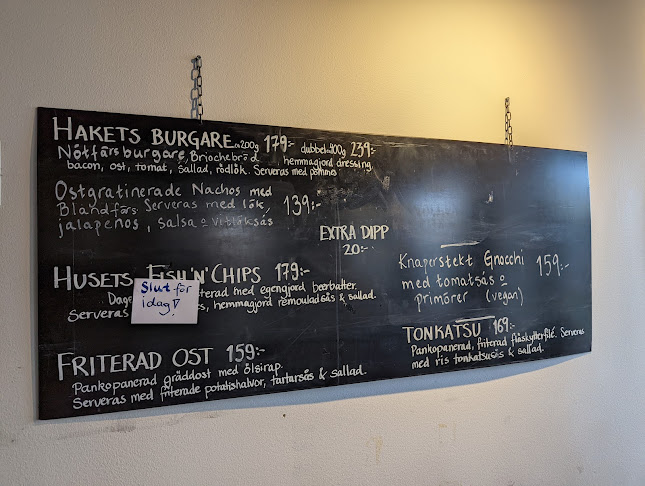 HAKETS BURGARE ca 200g 179:- dubbel 400g 239:-
Nötfärsburgare, Briochebröd hemmagjord dressing,
bacon, ost, tomat, sallad, rödlök. Serveras med pommes
Ostgratinerade Nachos med
Blandfärs. Serveras med lök, 139:-
jalapeños, salsa o vitlöksås
EXTRA DIPP
20:-
HUSETS FISH'N'CHIPS 179:-
Dage friterad med egengjord ölerbatter.
Serveras es, hemmagjord remouladsås & sallad.
Slut för
idag!
FRITERAD OST 159:-
Pankopanerad gräddost med ölsirap.
Serveras med friterade potatishalvor, tartarsås & sallad.
Knaperstekt Gnocchi
med tomatsås o 159:-
primörer (vegan)
TONKATSU 169:-
Pankopanerad, friterad fläskytterfilé. Serveras
med ris tonkatsusås & sallad.